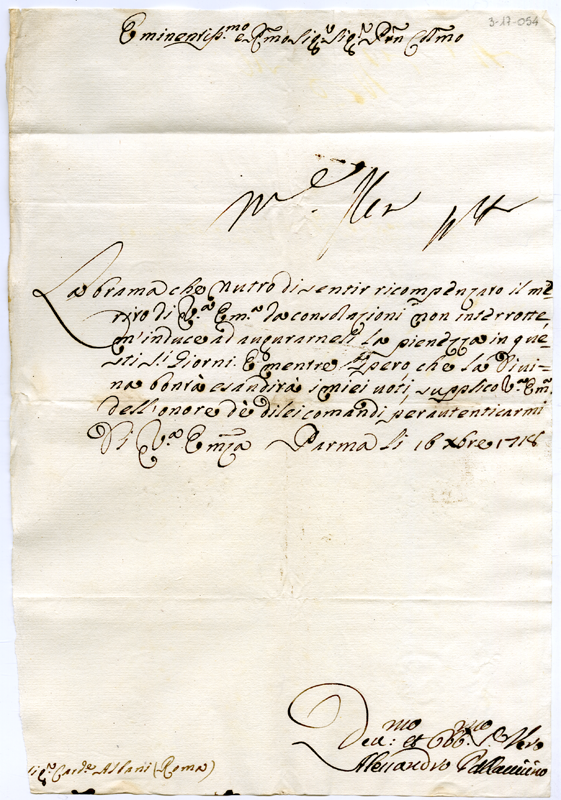 3-17-054
Eminentiss.mo e R.mo Sig.r Sig.r Prōn Col.mo
La brama che nutro di sentir ricompenzato il me-
rito di V.a Em.a da consolazioni non interrotte,
m'induce ad augurarneli la pienezza in que
sti S.ti Giorni. E mentre spero che la Divi-
na bontà esaudirà i miei voti, supplico V.a Em.a
dell'onore dè di lei comandi per autenticarmi
Di V.a Em.za Parma li 16 Xbre 1718
Dev.mo et Obb.mo Ser.re Vero
Alessandro Pallavicino
Sig.r Card.e Albani (Roma)